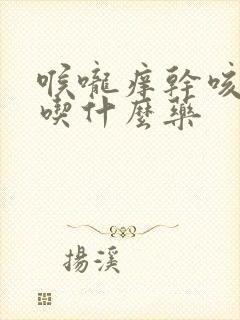 喉嚨痒幹咳
喫什麼藥
揚溪